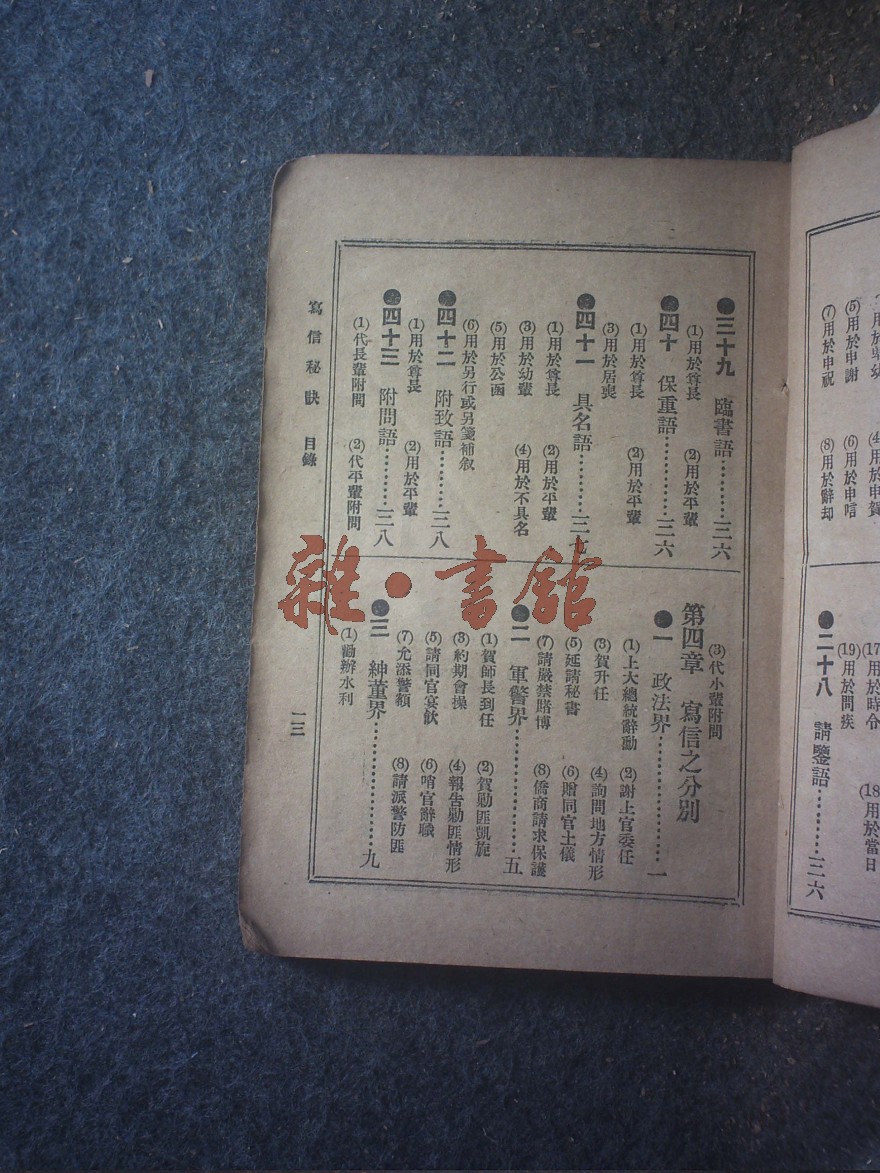 (5)用於申謝 (6)用於申唁
(7)用於申祝 (8)用於辭却
(17)用於時令 (18)用於當日
(19)用於問疾
●二十八 請鑒語………三六
●三十九 臨書語………三六
(1)用於尊長 (2)用於平輩
●四十 保重語………三六
(1)用於尊長 (2)用於平輩
(3)用於居喪
●四十一 具名語………三七
(1)用於尊長 (2)用於平輩
(3)用於幼輩 (4)用於不具名
(5)用於公函
(6)用於另行或另箋補敘
●四十二 附致語………三八
(1)用於尊長 (2)用於平輩
●四十三 附問語………三八
(1)代長輩附問 (2)代平輩附問
(3)代小輩附問
第四章 寫信之分別
●一 政法界………一
(1)上大總統辭勳 (2)謝上官委任
(3)賀升任 (4)詢問地方情形
(5)延請秘書 (6)贈同官土儀
(7)請嚴禁賭博 (8)僑商請求保護
●二 軍警界………五
(1)賀師長到任 (2)賀勦匪凱旋
(3)約期會操 (4)報告勦匪情形
(5)請同官宴飲 (6)哨官辭職
(7)允添警額 (8)請派警防匪
●三 紳董界………九
(1)勸辦水利
寫信秘訣 目錄
一三
雜·書館